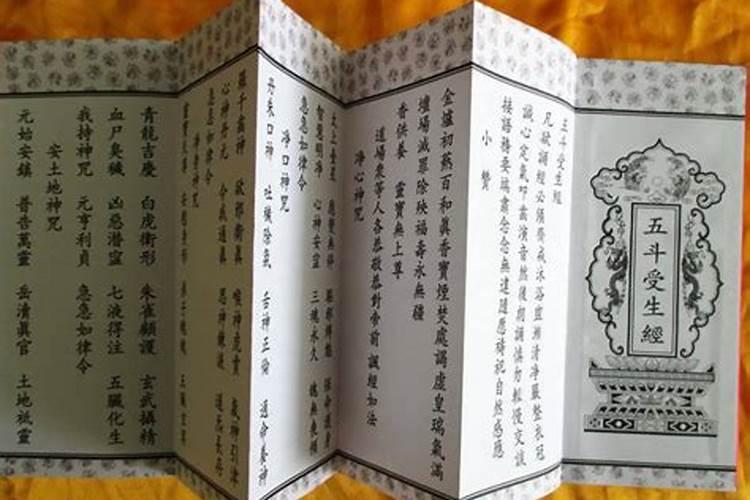 五斗受生經
五斗受生經
凡欲誦經必須齋戒沐浴盥漱清淨嚴整衣冠
誠心定氣叩齒演音然後朗誦慎勿輕慢交談
接語務要端肅念念無違隨應禱祀自然感應
小讚
金爐初爇百和真香寶煙焚處謁虛皇瑞氣滿
壇場滅罪除殃福壽永無疆
香供養 靈寶無上尊
道場衆等人各恭敬恭對帝前 誦經如法
淨心神咒
太上台星 應變無停 驅邪縛魅 保命護身
智慧明淨 心神安寧 三魂永久 魄無喪傾
急急如律令
淨口神咒
丹朱口神 吐穢除氛 舌神正倫 通命養神
羅千齒神 却邪衛真 喉神虎賁 氣神引津
心神丹元 令我通真 思神鍊液 道炁長存
急急如律令
淨身神咒
靈寶天尊 安慰身形 弟子魂魄 五臟玄冥
青龍吉慶 白虎衛形 朱雀顧護 玄武攝精
血尸臭穢 凶惡潛寧 七液得注 五臟化生
我持神咒 元亨利貞 急急如律令
安土地神咒
元始安鎮 普告萬靈 岳瀆真官 土地祇靈